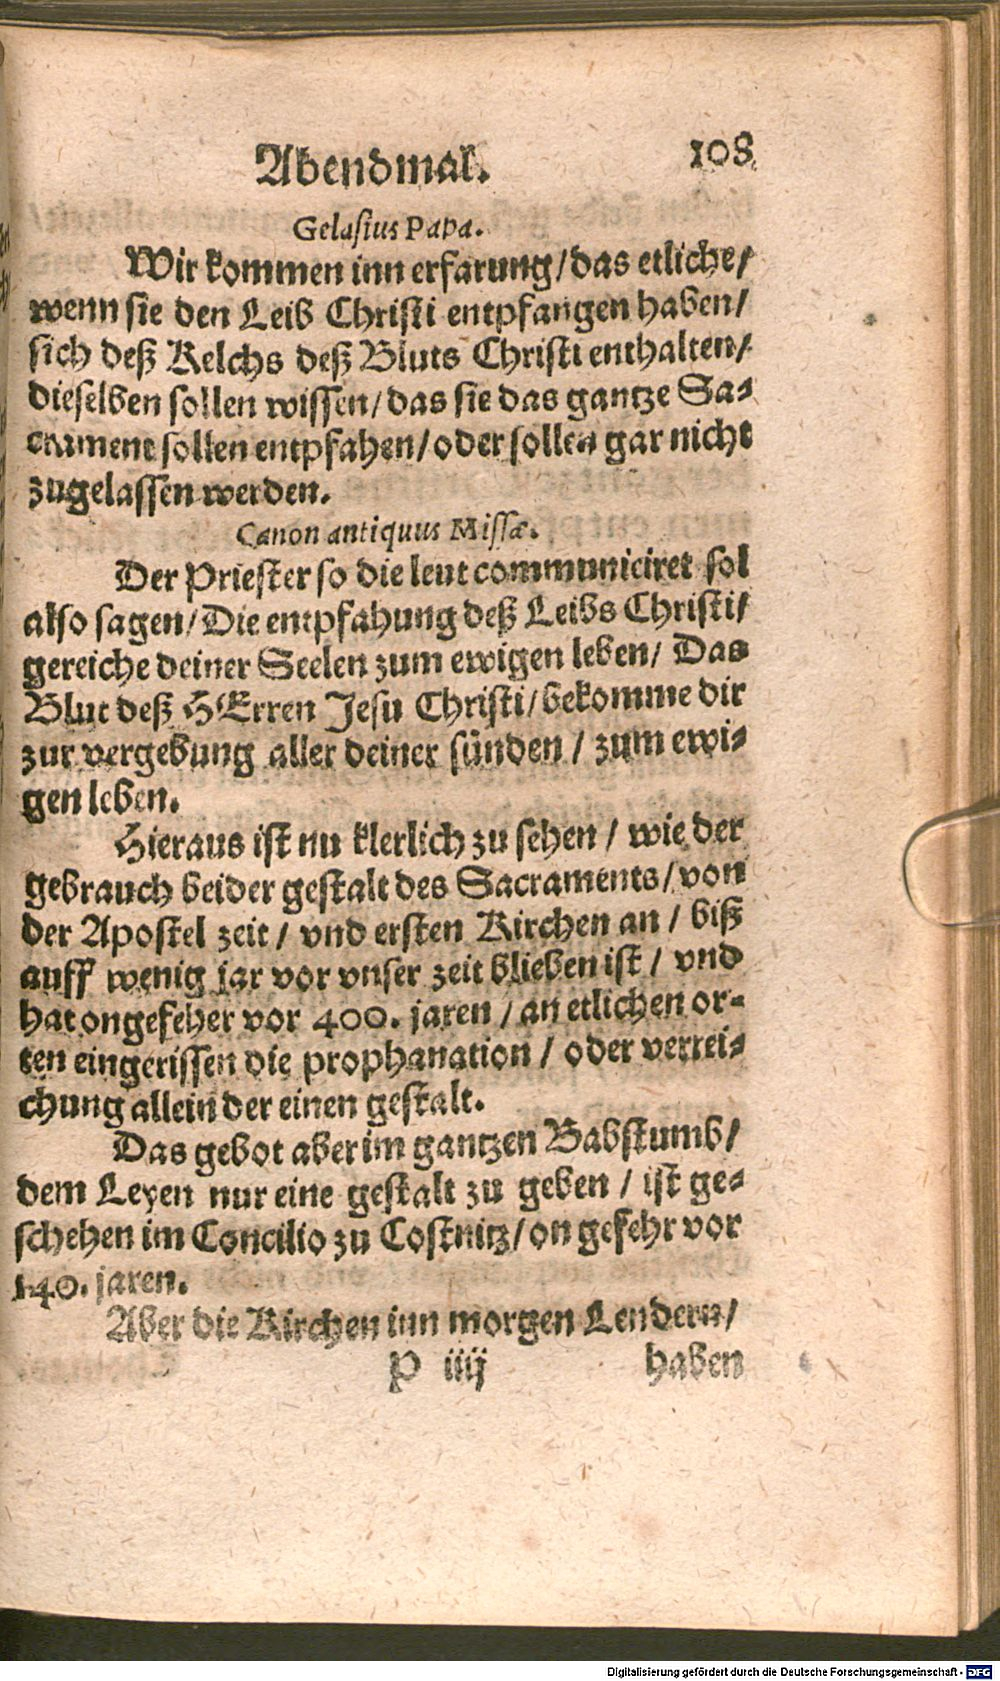 Abendmal. 108
Gelasius Papa.
Wir kommen inn erfarung/das etliche/
wenn sie den Leib Christi entpfangen haben/
sich deß Kelchs deß Bluts Christi enthalten/
dieselben sollen wissen/das sie das gantze Sa-
crament sollen entpfahen/oder sollen gar nicht
zugelassen werden.
Canon antiquus Missæ.
Der Priester so die leut communiciret sol
also sagen/Die entpfahung deß Leibs Christi/
gereiche deiner Seelen zum ewigen leben/ Das
Blut deß HErren Jesu Christi/bekomme dir
zur vergebung aller deiner sünden / zum ewi-
gen leben.
Hieraus ist nu klerlich zu sehen / wie der
gebrauch beider gestalt des Sacraments/von
der Apostel zeit / vnd ersten Kirchen an / biß
auff wenig jar vor vnser zeit blieben ist / vnd
hat ongefeher vor 400. jaren / an etlichen or-
ten eingerissen die prophanation / oder verrei-
chung allein der einen gestalt.
Das gebot aber im gantzen Babstumb/
dem Leyen nur eine gestalt zu geben / ist ge-
schehen im Concilio zu Costnitz/on gefehr vor
140. jaren.
Aber die Kirchen inn morgen Lendern/
P iiij haben
Digitalisierung gefördert durch die Deutsche Forschungsgemeinschaft - DFG